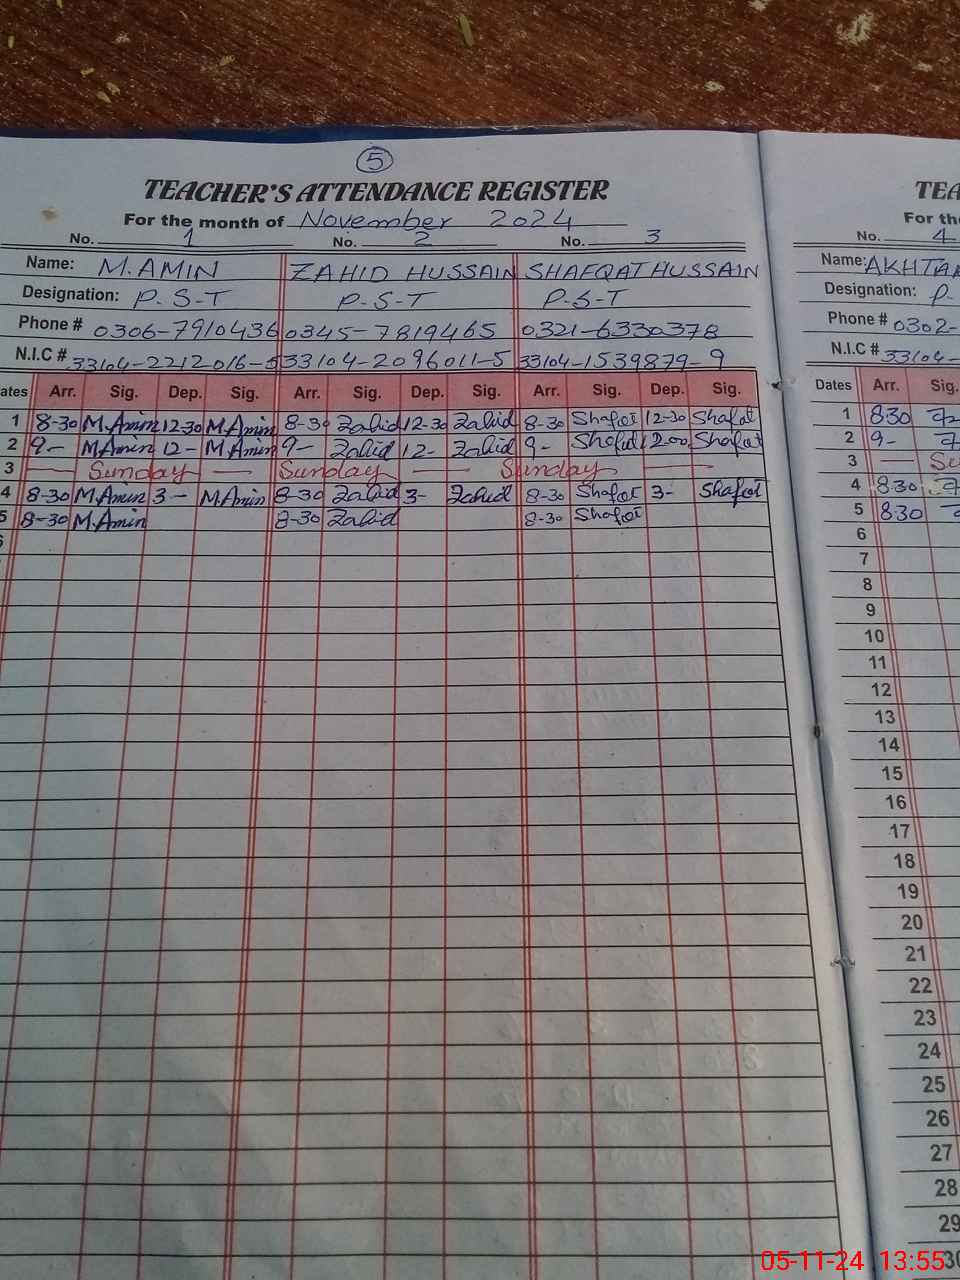 5
TEACHER'S ATTENDANCE REGISTER
For the month of November 2024
No. 1 No. 2 No. 3
Name: M.AMIN ZAHID HUSSAIN SHAFQAT HUSSAIN
Designation: P-S-T P-S-T P-S-T
Phone # 0306-7910436 0345-7819465 0321-6330378
N.I.C # 33104-2212016-5 33104-2096011-5 33104-1539879-9
ates Arr. Sig. Dep. Sig. Arr. Sig. Dep. Sig. Arr. Sig. Dep. Sig.
1 8-30 M.Amin 12-30 M.Amin 8-30 Zahid 12-30 Zahid 8-30 Shafqt 12-30 Shafqt
2 9- M.Amin 12- M.Amin 9- Zahid 12- Zahid 9- Shafqt 12-00 Shafqt
3 Sunday Sunday Sunday
4 8-30 M.Amin 3- M.Amin 8-30 Zahid 3- Zahid 8-30 Shafqt 3- Shafqt
5 8-30 M.Amin 8-30 Zahid 8-30 Shafqt
6
TEA
For th
No. 4
Name: AKHTA
Designation: P-
Phone # 0302-
N.I.C # 33104-
Dates Arr. Sig.
1 8-30
2 9-
3 Su
4 8-30
5 8-30
6
7
8
9
10
11
12
13
14
15
16
17
18
19
20
21
22
23
24
25
26
27
28
29
30
05-11-24 13:55